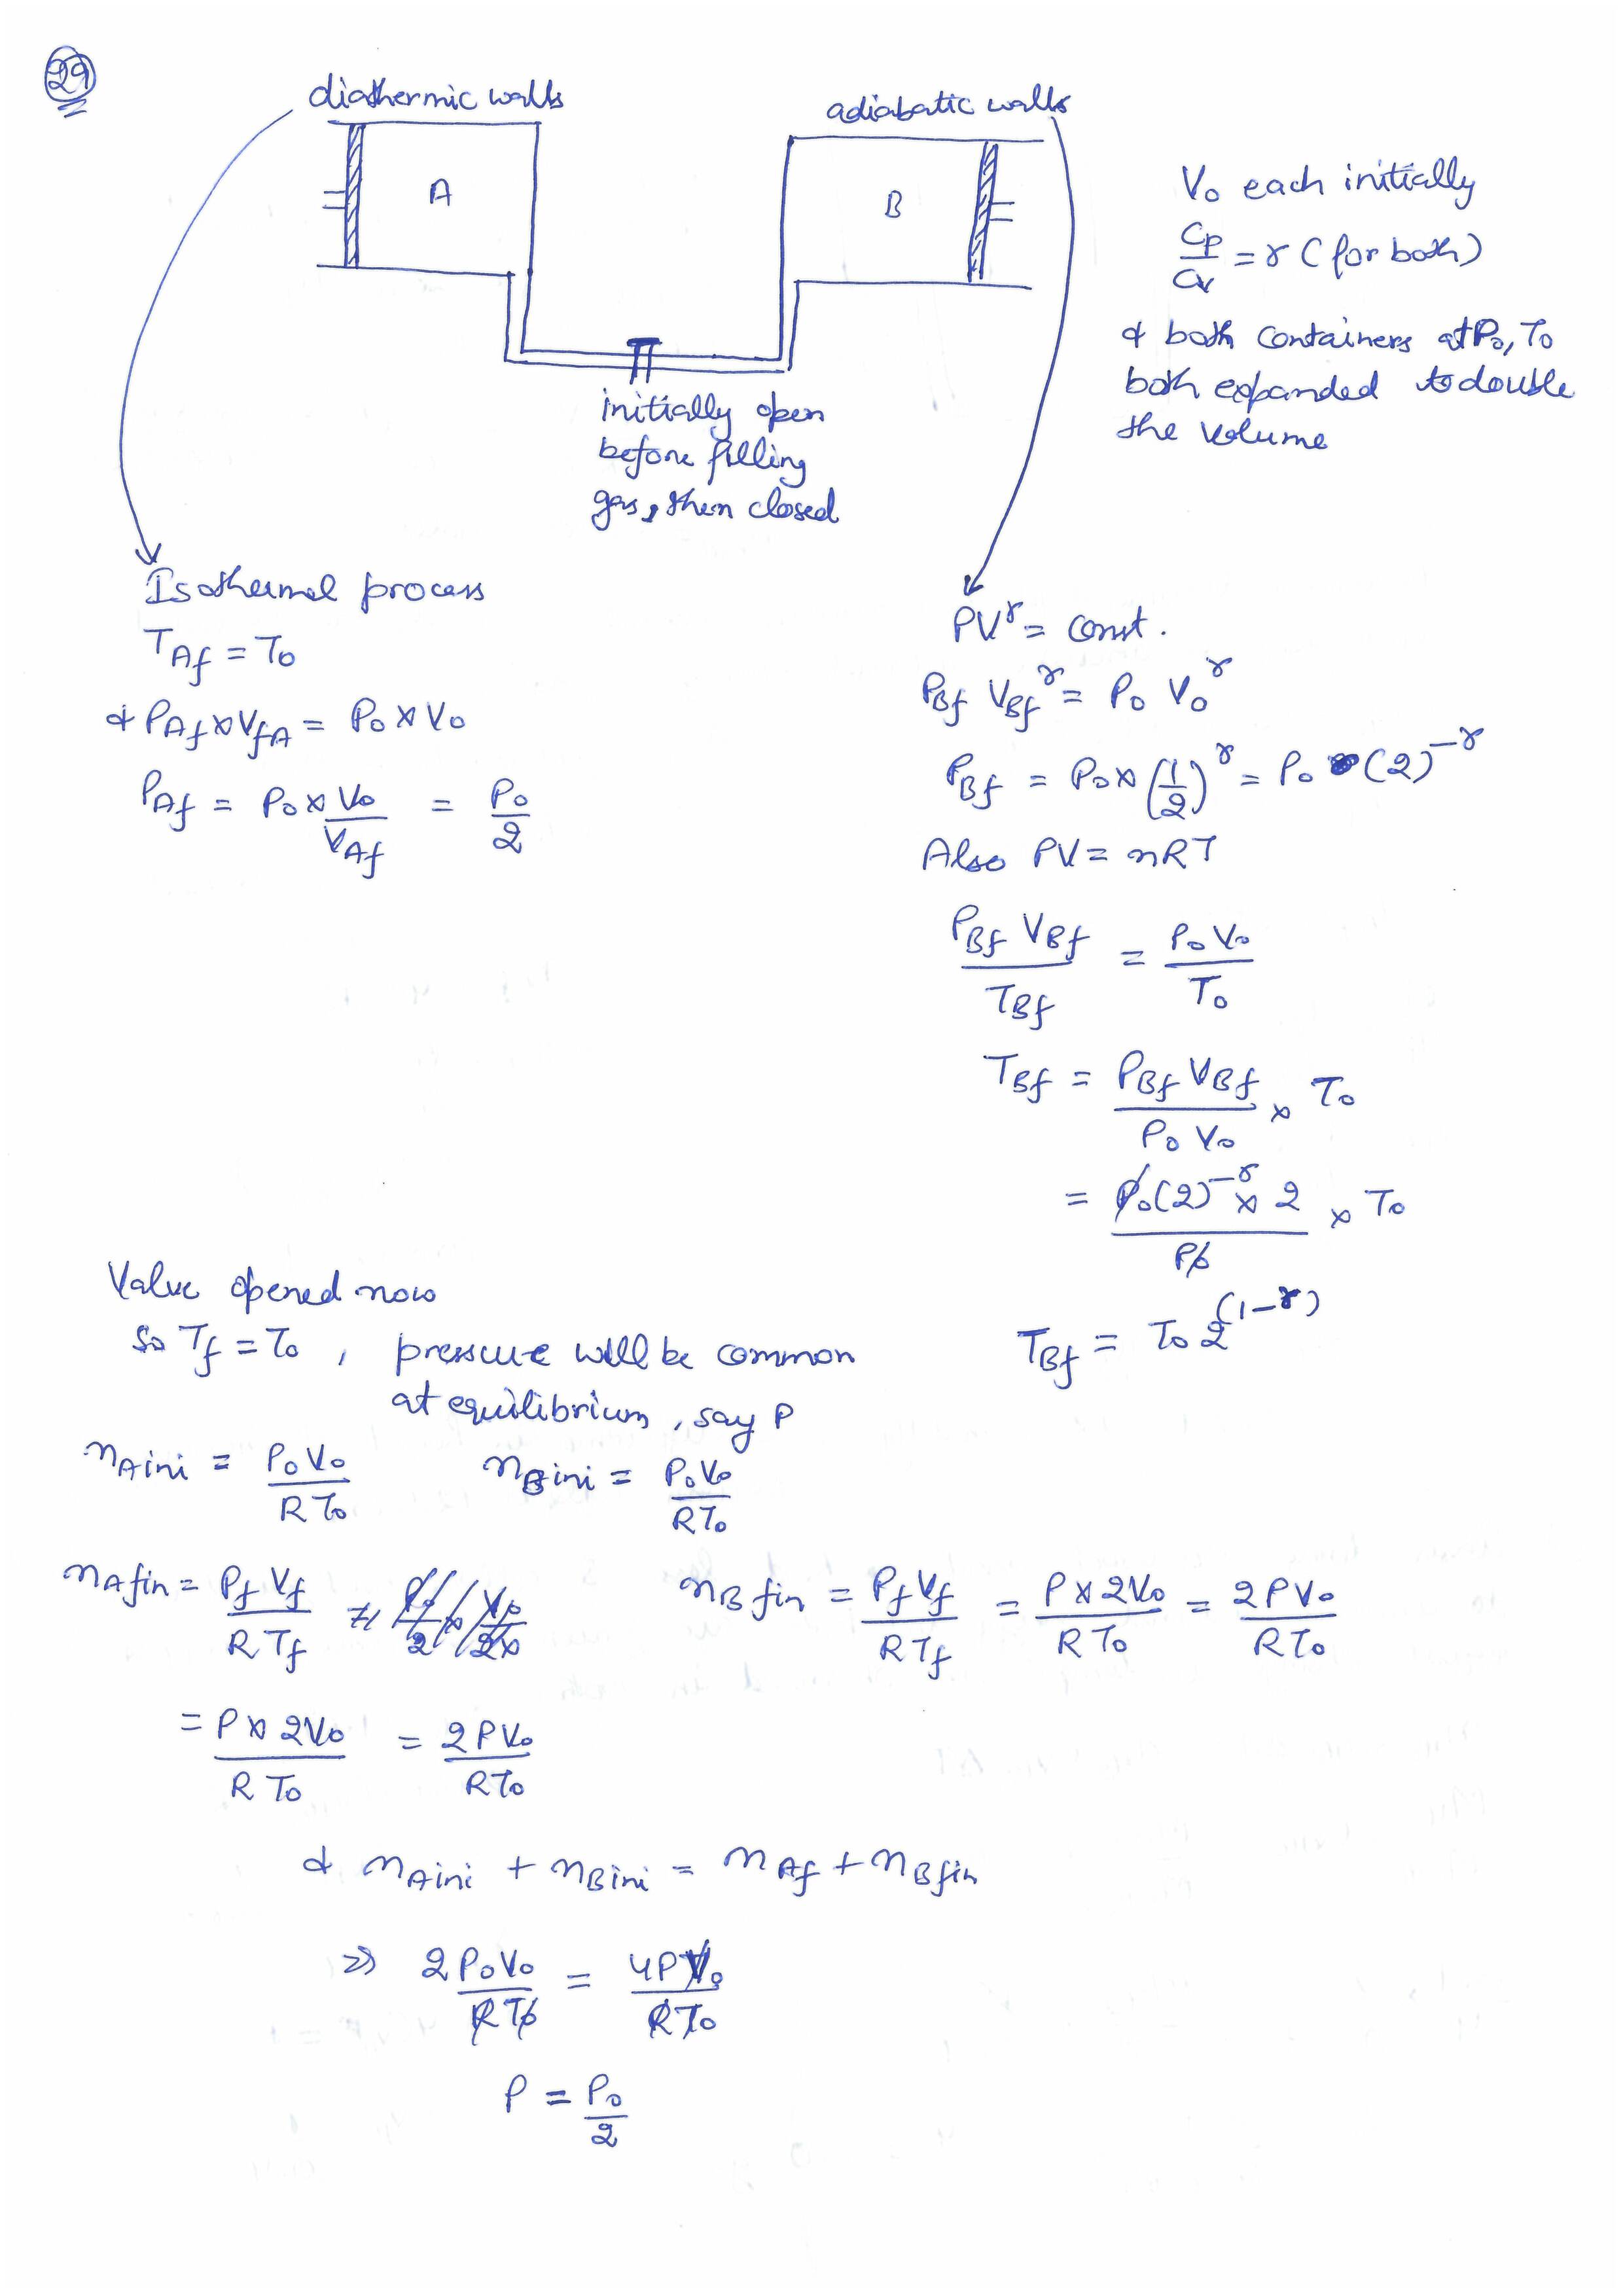 29
diathermic walls
adiabatic walls
A
B
V₀ each initially
Cp/Cv = γ (for both)
& both containers at P₀, T₀
both expanded to double
the volume
initially open
before filling
gas, then closed
Isothermal process
T_Af = T₀
& P_Af × V_fA = P₀ × V₀
P_Af = P₀ × V₀/V_Af = P₀/2
PV^γ = const.
P_Bf V_Bf^γ = P₀ V₀^γ
P_Bf = P₀ × (1/2)^γ = P₀ (2)^-γ
Also PV = nRT
P_Bf V_Bf / T_Bf = P₀ V₀ / T₀
T_Bf = P_Bf V_Bf / P₀ V₀ × T₀
= P₀ (2)^-γ × 2 / P₀ × T₀
T_Bf = T₀ 2^(1-γ)
Value opened now
So T_f = T₀ , pressure will be common
at equilibrium, say P
n_A ini = P₀ V₀ / R T₀
n_B ini = P₀ V₀ / R T₀
n_A fin = P_f V_f / R T_f
= P × 2V₀ / R T₀ = 2 P V₀ / R T₀
n_B fin = P_f V_f / R T_f = P × 2V₀ / R T₀ = 2 P V₀ / R T₀
& n_A ini + n_B ini = n_Af + n_B fin
⇒ 2 P₀ V₀ / R T₀ = 4 P V₀ / R T₀
P = P₀/2